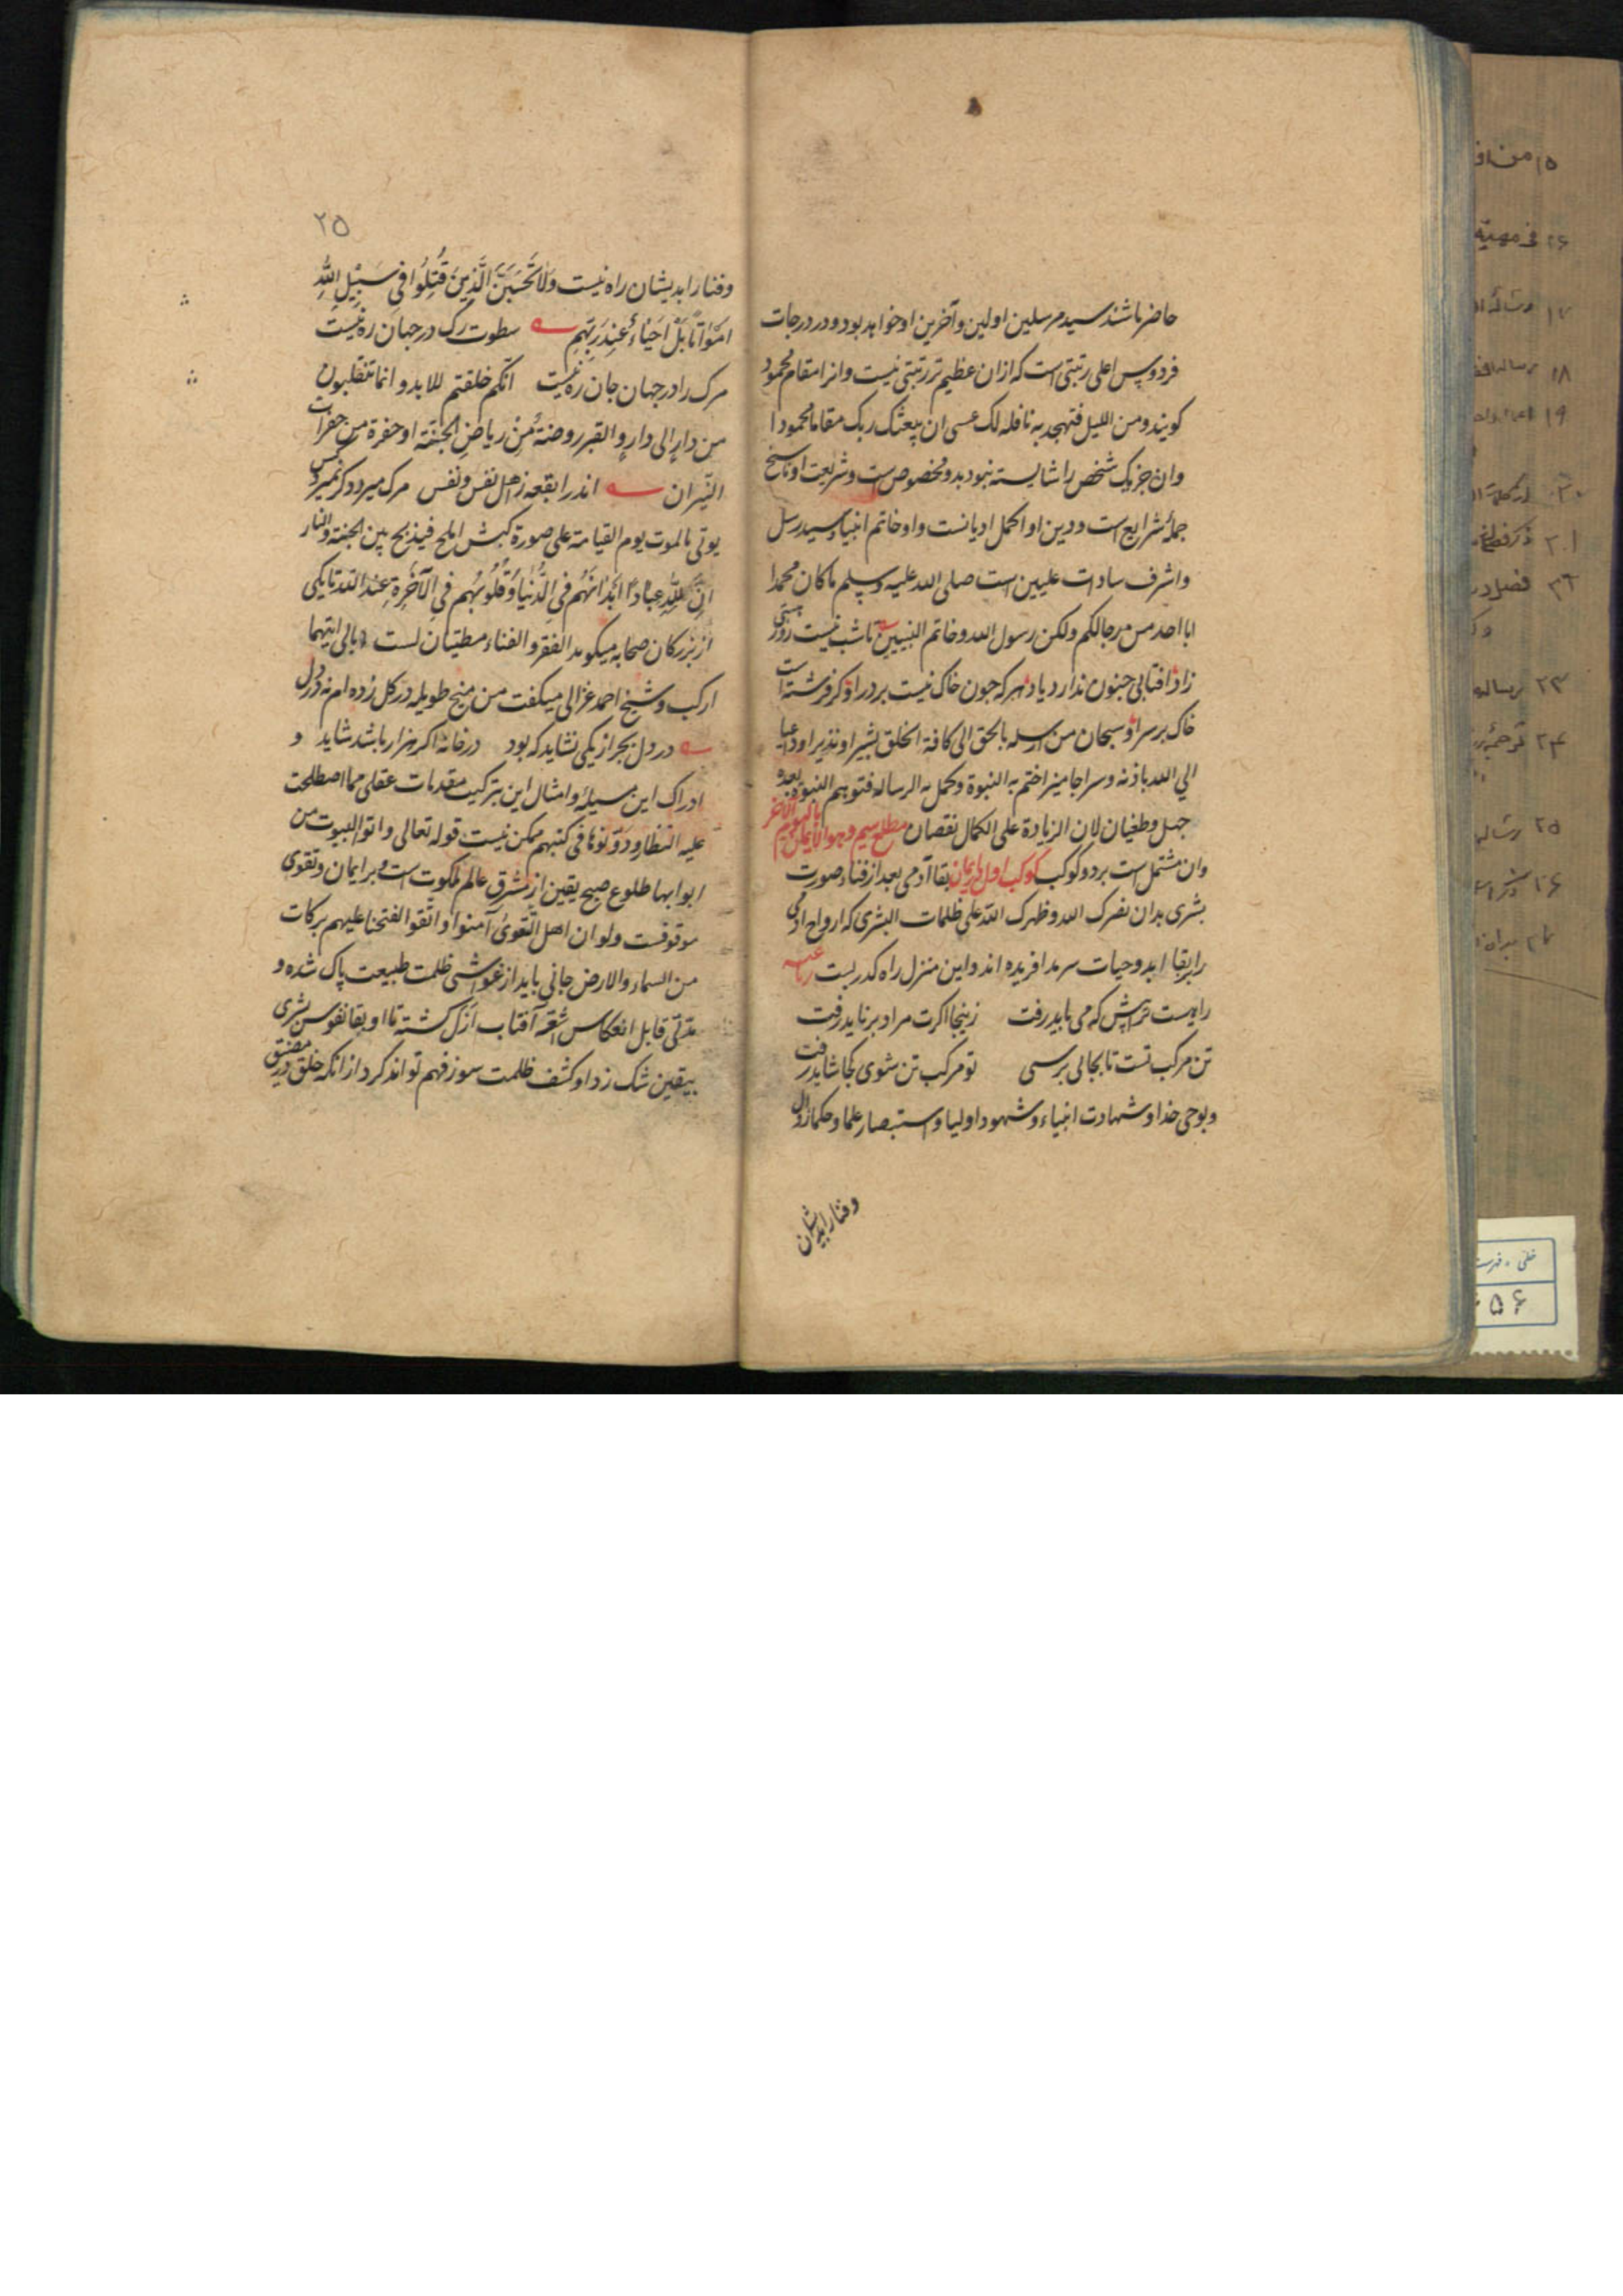 حاضر باشند سید مرسلین اولین وآخرین او خواهد بود ودر درجات
فردوس اعلی رتبتی است که ازان عظیم تر رتبتی نیست وانرا مقام محمود
کویند ومن اللیل فتهجد به نافله لک عسی ان یبعثک ربک مقاما محمودا
وان جز یک شخص را شایسته نبود بدو مخصوص است وشریعت او ناسخ
جملهٔ شرایع است ودین او اکمل ادیانست واو خاتم انبیاء وسید رسل
واشرف سادات علیین است صلی الله علیه وسلم ما کان محمدا
ابا احد من رجالکم ولکن رسول الله وخاتم النبیین تا شب نیست روز هستی
زاد افتابی چنون ندارد یاد هرکه چون خاک نیست بر در او کر فرشته است
خاک بر سر او سبحان من ارسله بالحق الی کافة الخلق بشیرا ونذیرا وداعیا
الی الله باذنه وسراجا منیرا ختم به النبوة وکمل به الرساله فتوهم النبوة بعده
جهل وطغیان لان الزیادة علی الکمال نقصان مطلع سیم وهو الایمان بالیوم الآخر
وان مشتمل است بر دو کوکب کوکب اول در بقاآدمی بعد از فناء صورت
بشری بدان نصرک الله وظهرک الله علی ظلمات البشری که ارواح ادمی
را بقا ابد وحیات سرمد افریده اند واین منزل راه کدریست رباعیه
راهیست ترا پیش که می باید رفت زینجا اکرت مراد بر ناید رفت
تن مرکب تست تا بجائی برسی تو مرکب تن شوی کجا شاید رفت
وبوحی خدا وشهادت انبیاء وشهود اولیا واستبصار علما وحکما زوال
وفنا را بدیشان
۲۵
وفنا را بدیشان راه نیست وَلَا تَحْسَبَنَّ الَّذِینَ قُتِلُوا فِی سَبِیْلِ اللّهِ
اَمْوَاتًا بَلْ اَحْیَاءٌ عِنْدَ رَبِّهِمْ سطوت رک در جهان ره نیست
مرک را در جهان جان ره نیست انکم خلقتم للابد وانما تنقلبون
من دارٍ الی دارٍ والقبر روضة من ریاض الجنة او حفرة من حفرات
النیران اندرا بقعه ز اهل نفس ونفس مرک میرد دکر نمیرد کس
یوتی بالموت یوم القیامة علی صورة کبش املح فیذبح بین الجنة والنار
اِنَّ لِلّهِ عِبَادًا اَبْدَانُهُم فِی الدُّنیَا وَقُلُوبُهُم فِی الآخِرَةِ عند الله تا یکی
از بزرکان صحابه میکوید الفقر والغناء مطیتان لست ابالی ایتهما
ارکب وشیخ احمد غزالی میکفت من میخ طویله در کل زده ام نه در دل
در دل بجز از یکی نشاید که بود در خانه اکر هزار باشد شاید و
ادراک این مسیله وامثال این بترکیب مقدمات عقلی مما اصطلحت
علیه النظار ودونوها فی کتبهم ممکن نیست قوله تعالی واتوا البیوت من
ابوابها طلوع صبح یقین از مشرق عالم ملکوت است وبر ایمان وتقوی
موقوفست ولو ان اهل القری آمنوا واتقوا لفتحنا علیهم برکات
من السماء والارض جانی باید از غواشی ظلمت طبیعت پاک شده و
مدتی قابل انعکاس اشعه آفتاب ازل کشته تا او بقا نفوس بشری
بیقین شک زدا وکشف ظلمت سوز فهم تواند کرد از انکه خلق در مضیق
۱۸
۱۹
۲۳ رساله
۲۵ رساله